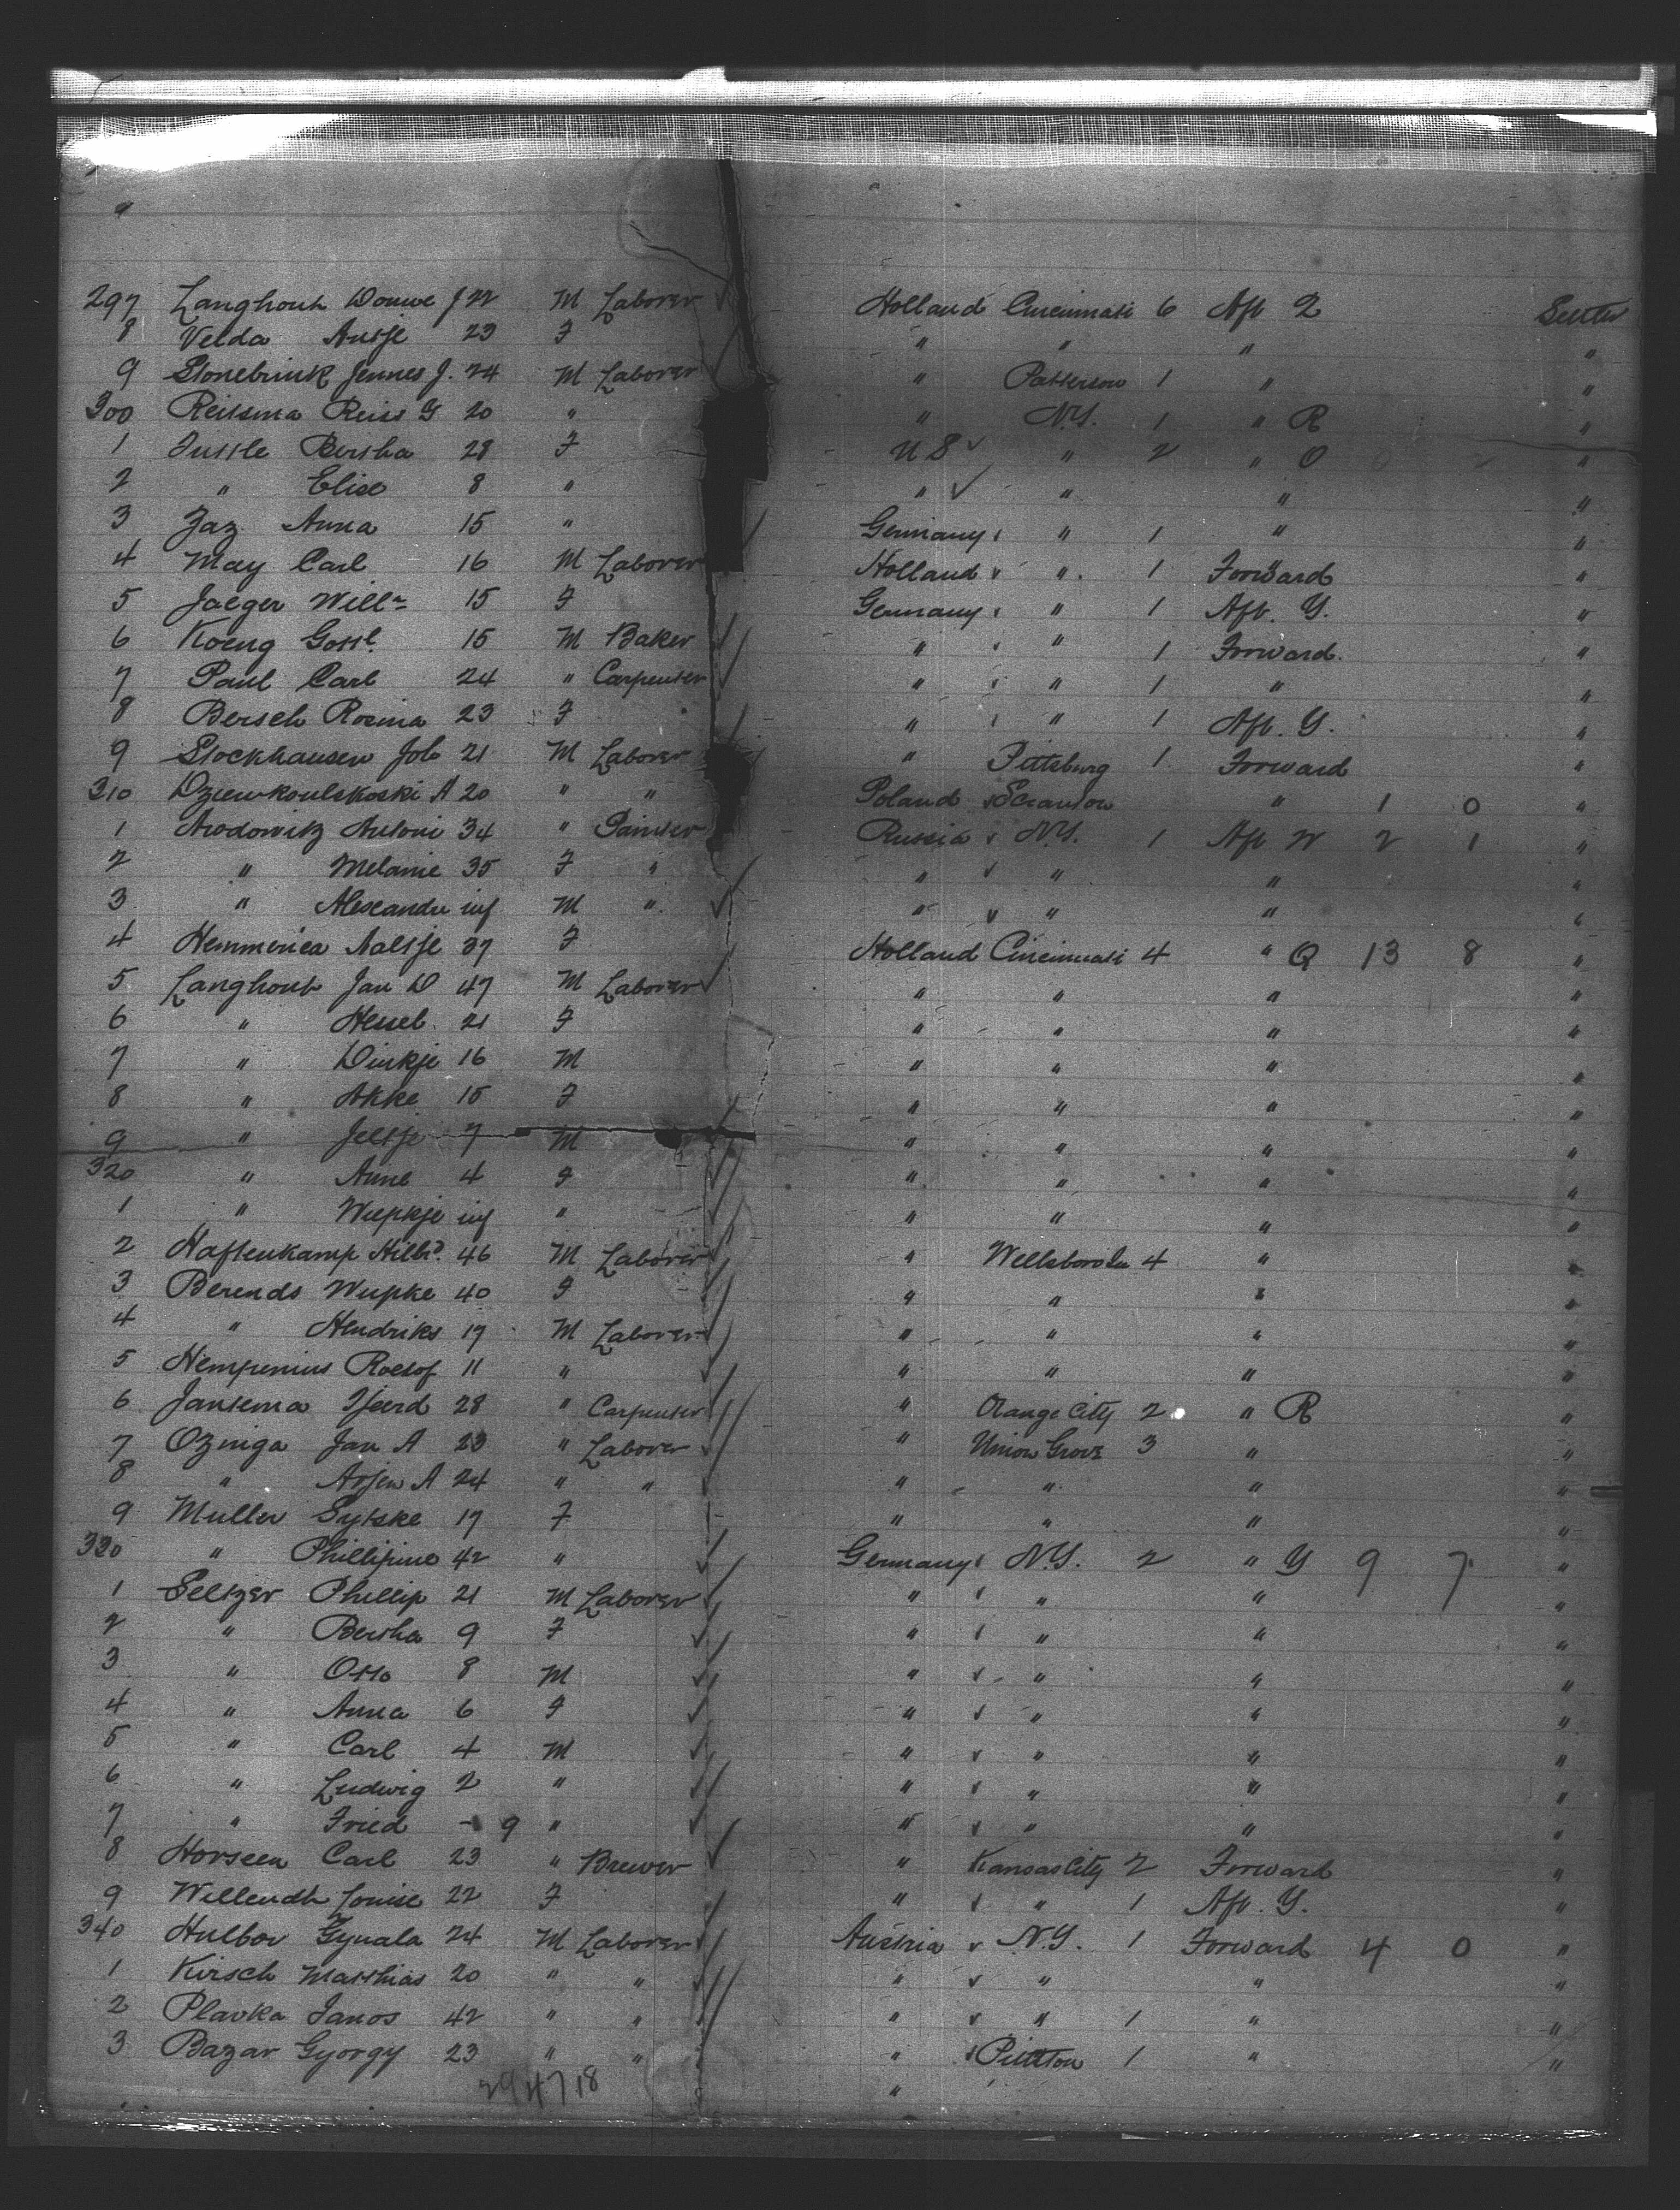 297 Langhout Douwe J 22 M Laborer Holland Cincinnati 6 Aft Q Settler
8 Velda Antje 23 F " " " "
9 Stonebrink Jennes J. 24 M Laborer " Patterson 1 " "
300 Reitsma Reiss G 20 " " N.Y. 1 " R "
1 Tussle Bertha 28 F U S " 2 " O "
2 " Elise 8 " " " " "
3 Zaz Anna 15 " Germany " 1 " "
4 May Carl 16 M Laborer Holland " 1 Forward "
5 Jaeger Willm 15 F Germany " 1 Aft. Y. "
6 Koeng Gottl. 15 M Baker " " 1 Forward. "
7 Paul Carl 24 " Carpenter " " 1 " "
8 Bersch Rosina 23 F " " 1 Aft. Y. "
9 Stockhausen Joh 21 M Laborer " Pittsburg 1 Forward "
310 A 20 " " Poland Scranton " 1 0 "
1 Arodowitz Antoni 34 " Painter Russia N.Y. 1 Aft W 2 1 "
2 " Melanie 35 F " " " " "
3 " Alexandu inf M " " " " "
4 Hemmerica Aaltje 37 F Holland Cincinnati 4 " Q 13 8 "
5 Langhout Jan D 47 M Laborer " " " "
6 " Hessel. 21 F " " " "
7 " Dirkje 16 M " " " "
8 " Akke 15 F " " " "
9 " Jeltje 7 M " " " "
320 " Anne 4 F " " " "
1 " Wupkje inf " " " " "
2 Haftenkamp Hillbd. 46 M Laborer " 4 " "
3 Berends Wupke 40 F " " " "
4 " Hendriks 17 M Laborer " " " "
5 Hempenius Roelof 11 " " " " "
6 Jansema Tjeerd 28 " Carpenter " Orange City 2 " R "
7 Ozinga Jan A 23 " Laborer " Union Grove 3 " "
8 " Arjen A 24 " " " " " "
9 Muller Sytske 17 F " " " "
330 " Phillipine 42 " Germany N.Y. 2 " Y 9 7 "
1 Seltzer Phillip 21 M Laborer " " " "
2 " Bertha 9 F " " " "
3 " Otto 8 M " " " "
4 " Anna 6 F " " " "
5 " Carl 4 M " " " "
6 " Ludwig 2 " " " " "
7 " Fried - 9 " " " " "
8 Horseen Carl 23 " Brewer " Kansas City 2 Forward "
9 Willendh Louise 22 F " " 1 Aft. Y. "
340 Hulbov Gynala 24 M Laborer Austria N.Y. 1 Forward 4 0 "
1 Kirsch Matthias 20 " " " " " "
2 Plavka Janos 42 " " " " 1 " "
3 Bazar Gyorgy 23 " " " Pittston 1 " "
"